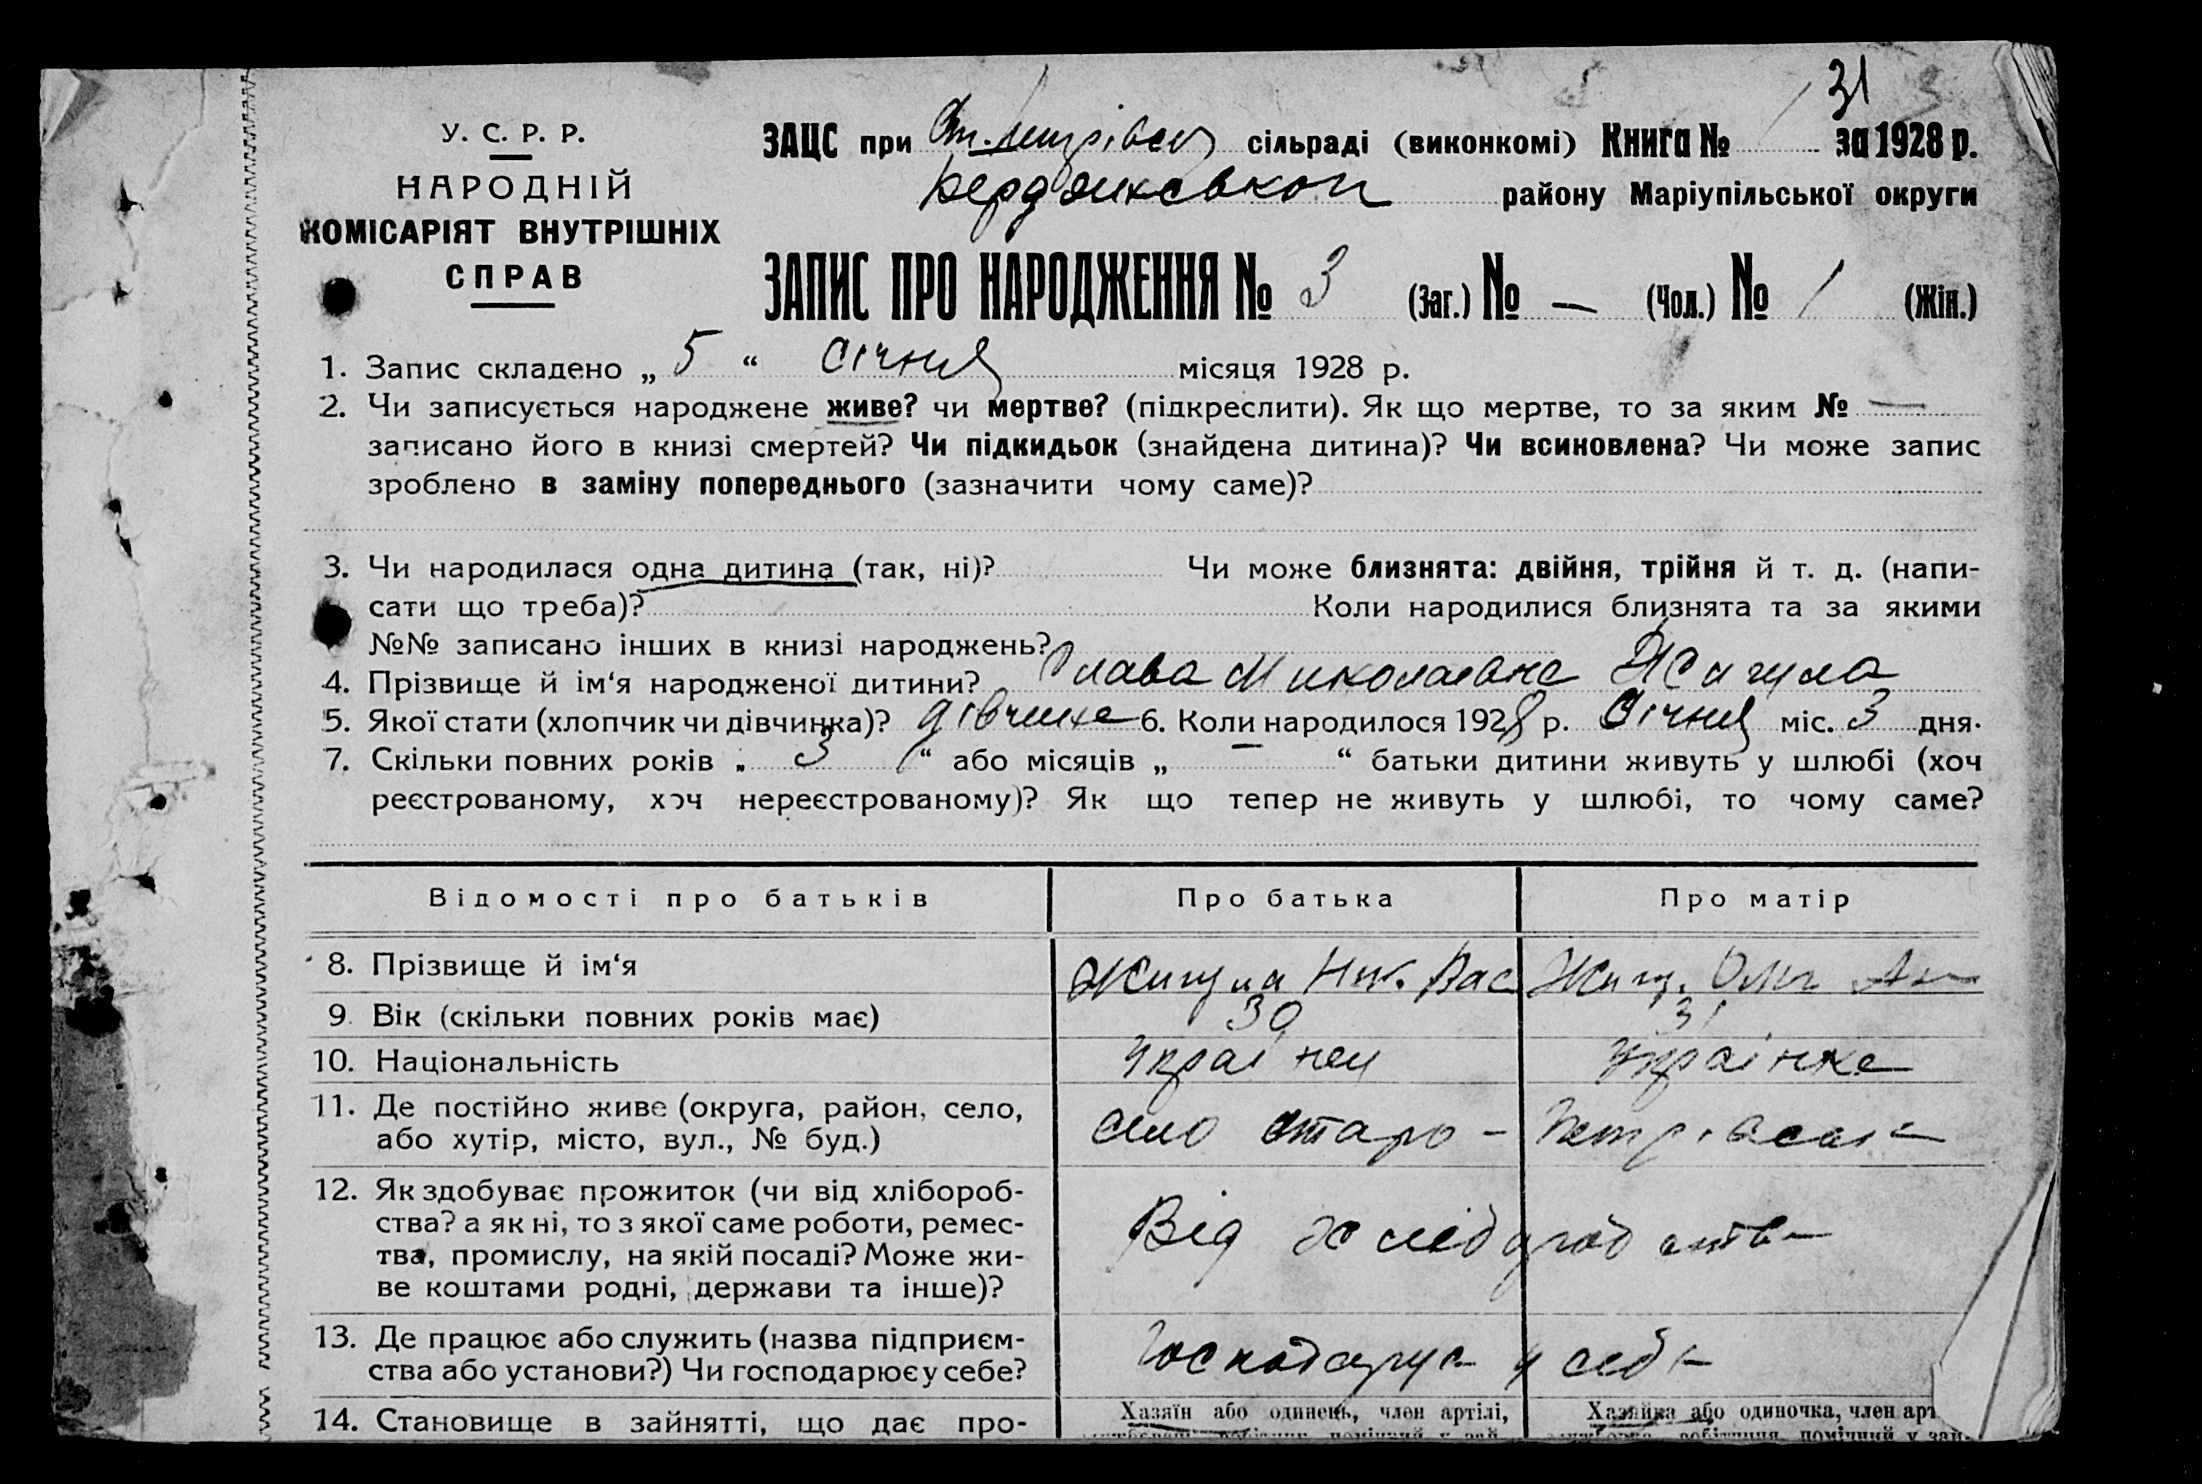 31
У. С. Р. Р.
НАРОДНІЙ
КОМІСАРІЯТ ВНУТРІШНІХ
СПРАВ
ЗАЦС при сільраді (виконкомі) Книга № 1 за 1928 р.
Бердянської району Маріупільської округи
ЗАПИС ПРО НАРОДЖЕННЯ № 3 (Заг.) № — (Чол.) № 1 (Жін.)
1. Запис складено „ 5 “ Січня місяця 1928 р.
2. Чи записується народжене живе? чи мертве? (підкреслити). Як що мертве, то за яким № —
записано його в книзі смертей? Чи підкидьок (знайдена дитина)? Чи всиновлена? Чи може запис
зроблено в заміну попереднього (зазначити чому саме)?
3. Чи народилася одна дитина (так, ні)? Чи може близнята: двійня, трійня й т. д. (напи-
сати що треба)? Коли народилися близнята та за якими
№№ записано інших в книзі народжень?
4. Прізвище й ім‘я народженої дитини? Миколаївна Жигула
5. Якої стати (хлопчик чи дівчинка)? 6. Коли народилося 1928 р. Січня міс. 3 дня.
7. Скільки повних років „ 3 “ або місяців „ — “ батьки дитини живуть у шлюбі (хоч
реєстрованому, хоч нереєстрованому)? Як що тепер не живуть у шлюбі, то чому саме?
Відомості про батьків Про батька Про матір
8. Прізвище й ім‘я Жигула Ник. Вас Жигу.
9. Вік (скільки повних років має) 30 31
10. Національність Українец Українка
11. Де постійно живе (округа, район, село,
або хутір, місто, вул., № буд.) село Старо-
12. Як здобуває прожиток (чи від хлібороб-
ства? а як ні, то з якої саме роботи, ремес-
тва, промислу, на якій посаді? Може жи-
ве коштами родні, держави та інше)? Від
13. Де працює або служить (назва підприєм-
ства або установи?) Чи господарює у себе? у себе
14. Становище в зайнятті, що дає про- Хазяїн або одинець, член артілі, Хазяйка або одиночка, член арт